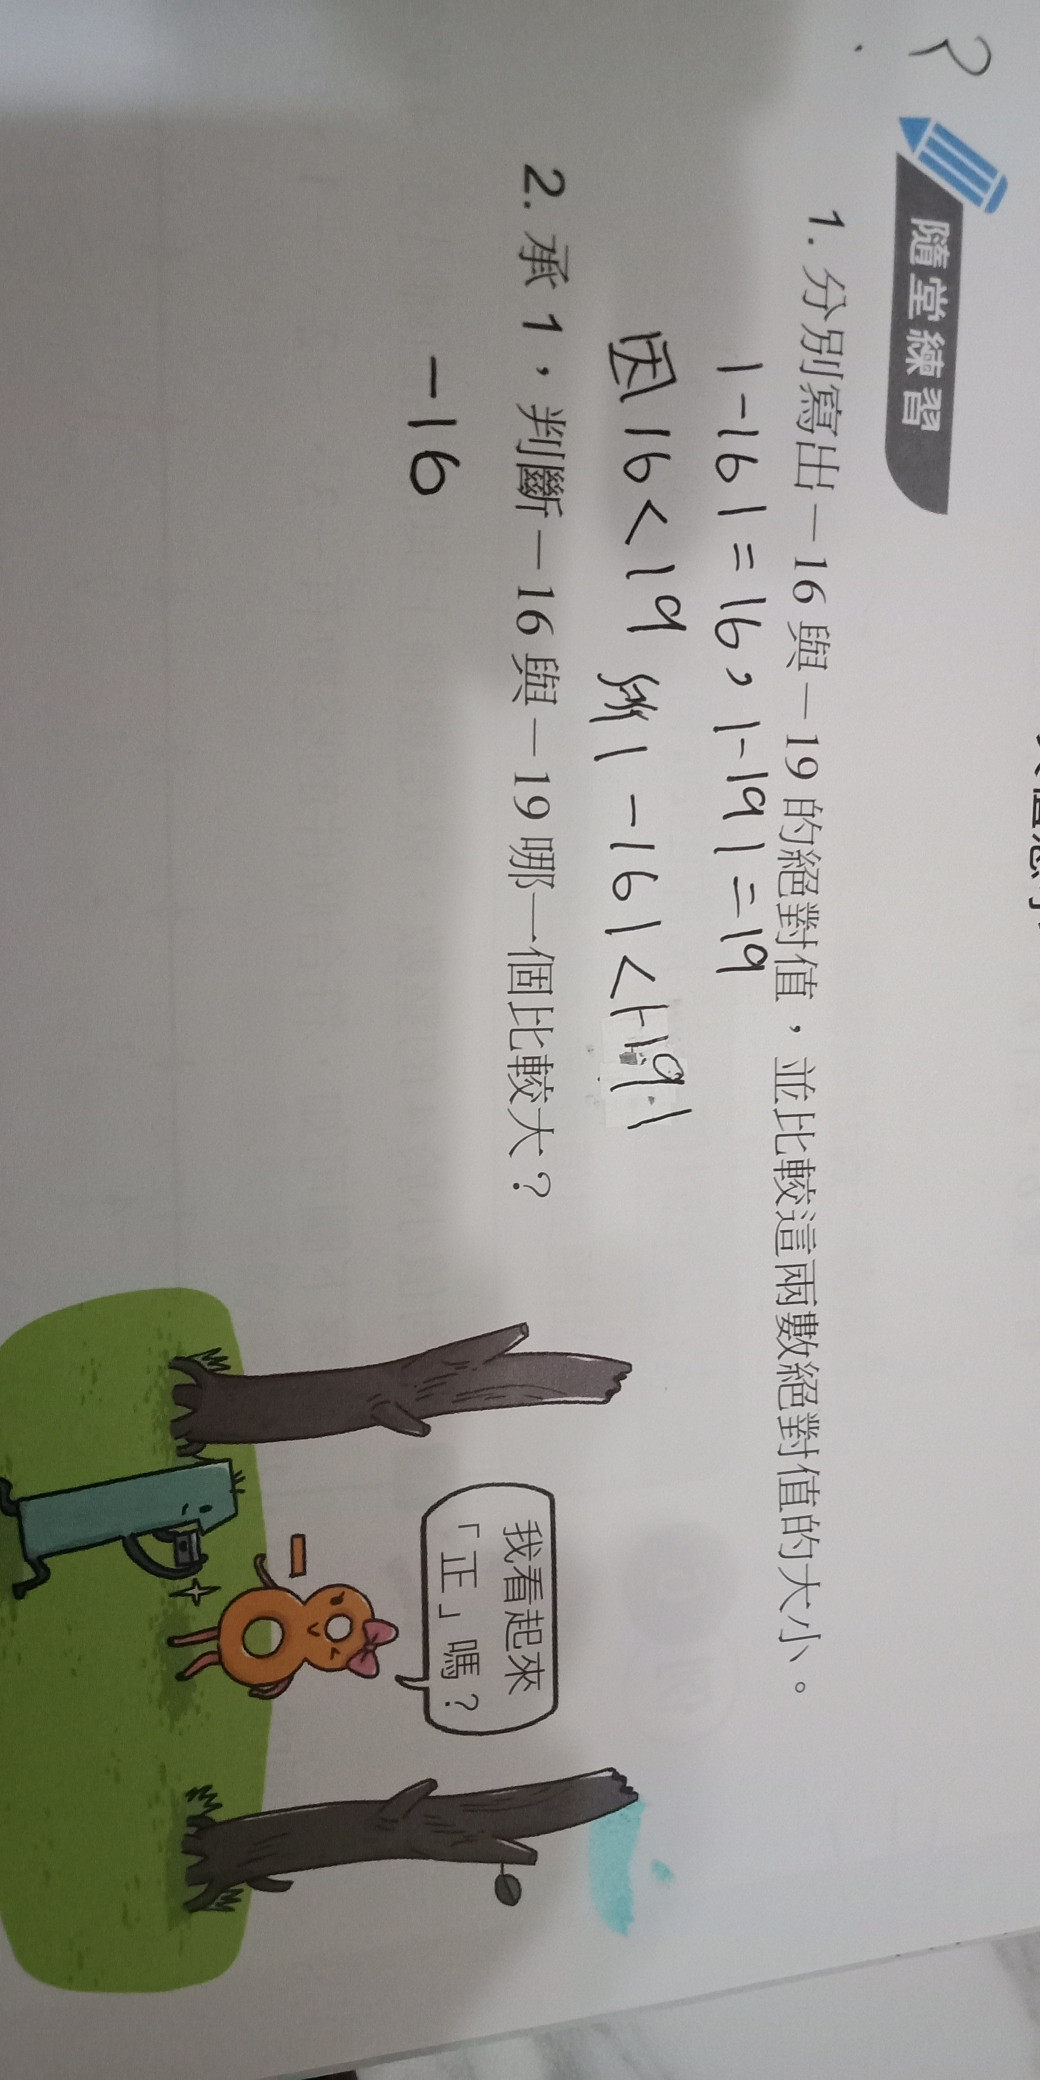 隨堂練習
1. 分別寫出－16與－19的絕對值，並比較這兩數絕對值的大小。
|-16|=16，|-19|=19
因16<19 所以|-16|<|-19|
2. 承1，判斷－16與－19哪一個比較大？
-16
我看起來
「正」嗎？